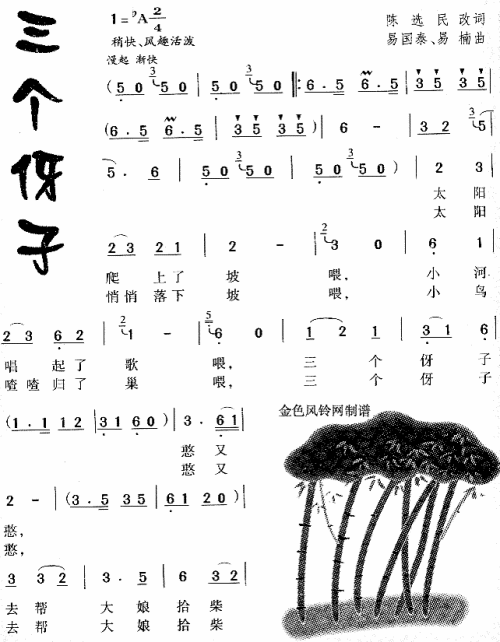 三个伢子
1=♭A 2/4
陈选民改词
稍快、风趣活泼
易国泰、易楠曲
慢起 渐快
(5 0 5 0 | 5 0 5 0 ‖: 6. 5 6. 5 | 3 5 3 5 |
(6. 5 6. 5 | 3 5 3 5) | 6 - | 3 2 5 |
5. 6 | 5 0 5 0 | 5 0 5 0) | 2 3 |
太阳
太阳
2 3 2 1 | 2 - | 3 0 | 6 1 |
爬上了坡喂,小河
悄悄落下坡喂,小鸟
2 3 6 2 | 1 - | 6 0 | 1 2 1 | 3 1 6 |
唱起了歌喂,三个伢子
喳喳归了巢喂,三个伢子
(1. 1 1 2 | 3 1 6 0) | 3. 6 1 |
金色风铃网制谱
憨又
憨又
2 - | (3. 5 3 5 | 6 1 2 0) |
憨,
憨,
3 3 2 | 3. 5 | 6 3 2 |
去帮大娘拾柴
去帮大娘拾柴